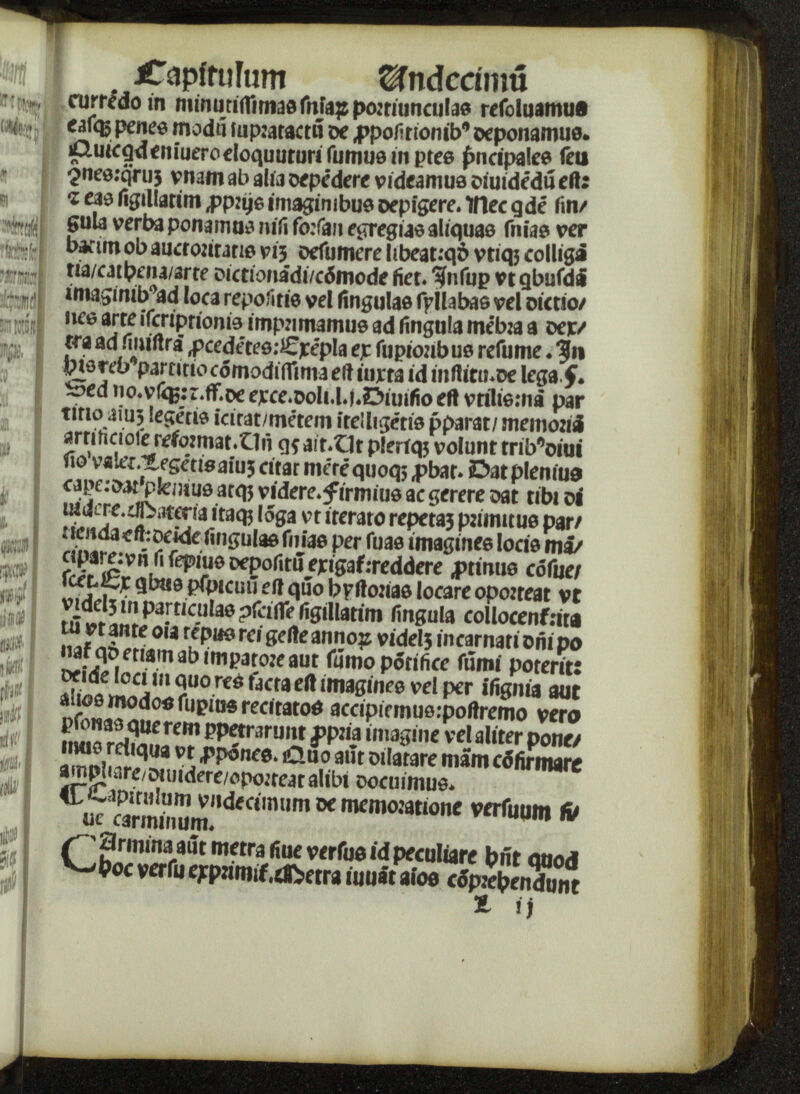 Capitulum Undecimū
currēdo in minutissimas snīaꝝ portiunculas resoluamus
easqꝫ penes modū supratactū de ꝓpositionibꝰ deponamus.
Quicqd eniuero eloquuturi sumus in ptes p̄ncipales seu
ꝯnes:qruꝫ vnam ab alia depēdere videamus diuidēdū est:
⁊ eas sigillatim ꝓprijs imaginibus depigere. Nec qdē sin/
gula verba ponamus nisi forsan egregias aliquas snias ver
batim ob auctoritatis viꝫ desumere libeat:qd̄ vtiqꝫ colligā
tia/cathena/arte dictionādi/cōmode fiet. Insup vt qbusdā
imaginibꝰ ad loca repositis vel singulas syllabas vel dictio/
nes arte iscriptionis imprimamus ad singula mēbra a dex/
tra ad sinistrā ꝓcedētes: Exēpla ex superioribus resume. In
his rebꝰ partitio cōmodissima est iuxta id institu. de lega. §.
Sed no. vsqꝫ: ⁊. ff. de exce. doli. l. j. Diuisio est vtilis: nā par
titio aiuꝫ legētis icitat/mētem itelligētis p̄parat/ memoriā
artificiose reformat. Un̄ qs ait. Ut pleriqꝫ volunt tribꝰ diui
sio valet. Legētis aiuꝫ citat mētē quoqꝫ ꝓbat. Dat plenius
cape: dat plenius atqꝫ videre. Firmius ac gerere dat tibi di
uidere. Materia itaqꝫ lōga vt iterato repetaꝫ primitus par/
tienda est: deide singulas snias per suas imagines locis mā/
cipare: vn̄ si sepius depositū exigat: reddere ꝓtinus cōsue/
scet. Ex qbus pspicuū est quo hystorias locare oporteat vt
videlꝫ in particulas ꝯscisse sigillatim singula collocent: ita
tū vt ante oia tēpus rei geste annoꝝ videlꝫ incarnati dn̄i po
nat qd̄ etiam ab impatore aut sūmo pōtifice sūmi poterit:
deide loci in quo res facta est imagines vel per isignia aut
alios modos supius recitatos accipiemus: postremo vero
psonas que rem ppetrarunt ꝓpria imagine vel aliter pone/
mus reliqua vt ꝓpōnes. Quo aūt dilatare mām cōfirmare
ampliare/diuidere/oporteat alibi docuimus.
¶ Capitulum vndecimum de memoratione versuum si/
ue carminum.
CArmina aūt metra siue versus id peculiare hn̄t quod
hoc versu exprimit. Metra iuuāt aios cōprehendunt
L ij